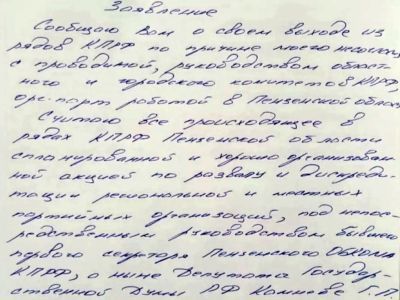 Заявление
Сообщаю Вам о своем выходе из
рядов КПРФ по причине моего несоглас
с проводимой, руководством област-
ного и городского комитетов КПРФ,
орг-парт работой в Пензенской област
Считаю все происходящее в
рядах КПРФ Пензенской области
спланированной и хорошо организован
ной акцией по развалу и дискреди-
тации региональной и местных
партийных организаций, под непос-
редственным руководством бывшего
первого секретаря Пензенского ОБКОМа
КПРФ, а ныне Депутата Государ-
ственной Думы РФ Камнева Г.П.